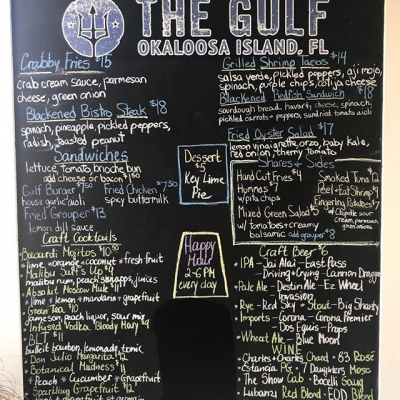 THE GULF
OKALOOSA ISLAND, FL
Crabby Fries $15
crab cream sauce, parmesan
cheese, green onion
Blackened Bistro Steak $18
spinach, pineapple, pickled peppers,
radish, toasted peanut
Sandwiches
lettuce, tomato, brioche bun
add cheese or bacon
Gulf Burger $7.50
house garlic aioli
Fried Chicken $7.50
spicy buttermilk
Fried Grouper $13
lemon dill sauce
Craft Cocktails
Bacardi Mojitos $10
lime orange coconut fresh fruit
Malibu Surf's Up $4
malibu rum, peach schnapps, juices
Absolut Moscow Mule
lime lemon mandarin grapefruit
Green Tea $10
jameson, peach liquor, sour mix
Infused Vodka Bloody Mary $9
BLT $11
bulleit bourbon, lemonade, tonic
Don Julio Margarita $12
Botanical Madness $11
Peach Cucumber Grapefruit
Sparkling Grapefruit $12
Grilled Shrimp Tacos $14
salsa verde, pickled peppers, aji mojo,
spinach, purple chips, cotija cheese
Blackened Redfish Sandwich $18
sourdough bread, havarti cheese, spinach,
pickled carrots + peppers, sundried tomato aioli
Fried Oyster Salad $17
lemon vinaigrette, orzo, baby kale,
red onion, cherry tomato
Shares + Sides
Hand Cut Fries $4
Hummus $7
w/pita chips
Mixed Green Salad $5
w/ tomatoes + creamy
balsamic add grouper $8
Smoked Tuna $12
Peel + Eat Shrimp
Fingerling Potatoes $7
w/ chipotle sour
cream, parmesan,
green onion
Dessert
$5
Key Lime
Pie
Happy
Hour
2-6 PM
every day
Craft Beer $6
IPA - Jai Alai - East Pass
- Driving + Crying - Cannon Dragger
Pale Ale - Destin Ale - EZ Wheel
Invasion
Rye - Red Sky Stout - Big Shanty
Imports - Corona - Corona Premier
- Dos Equis - Props
Wheat Ale - Blue Moon
WINE
Charles + Charles Chard 83 Rosé
Estancia PG 7 Daughters Mosc
The Show Cab Bocelli Sauv
Lubanzi Red Blend EOD Blend